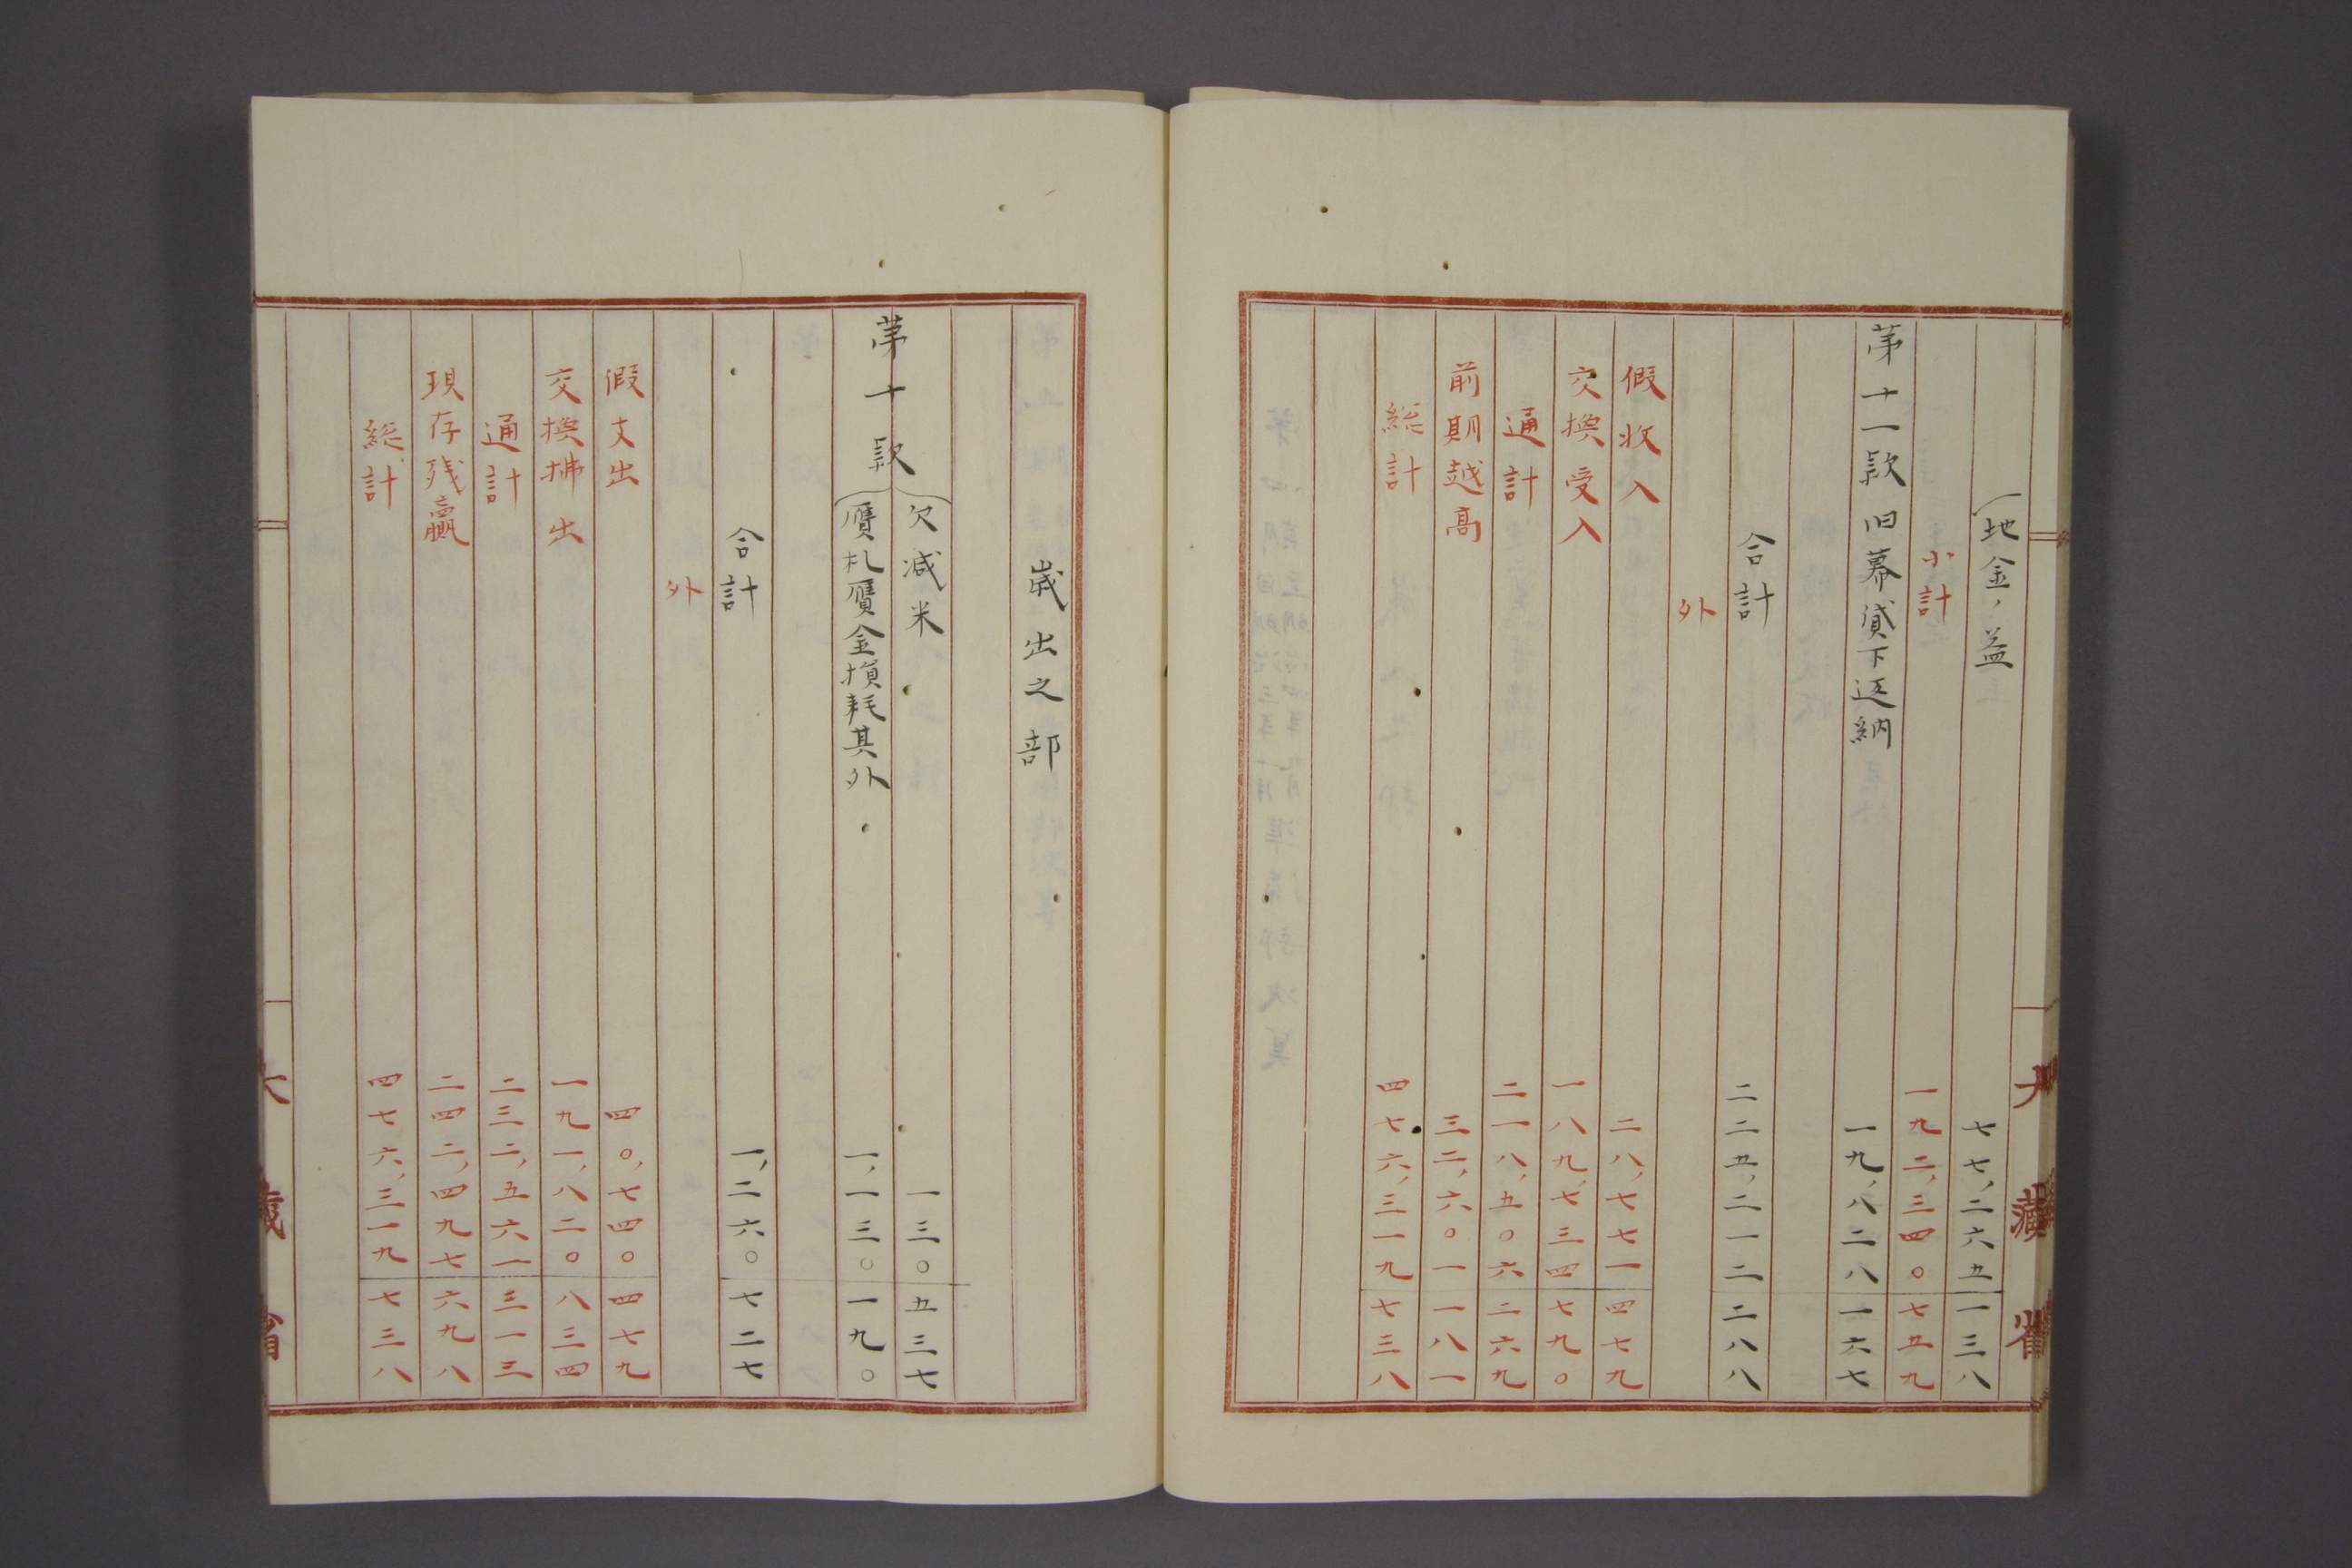 地金益 七七,二六五 一三八
小計 一九二,三四〇 七五九
第十一款 旧幕貸下返納 一九,八二八 一六七
合計 二二五,二一二 二八八
外
假收入 二八,七七一 四七九
交換受入 一八九,七三四 七九〇
通計 二一八,五〇六 二六九
前期越高 三二,六〇一 一八一
総計 四七六,三一九 七三八
大藏省
歳出之部
第十款
欠减米 一三〇 五三七
贋札贋金損耗其外 一,一三〇 一九〇
合計 一,二六〇 七二七
外
假支出 四〇,七四〇 四七九
交換拂出 一九一,八二〇 八三四
通計 二三二,五六一 三一三
現存残贏 二四二,四九七 六九八
総計 四七六,三一九 七三八
大藏省